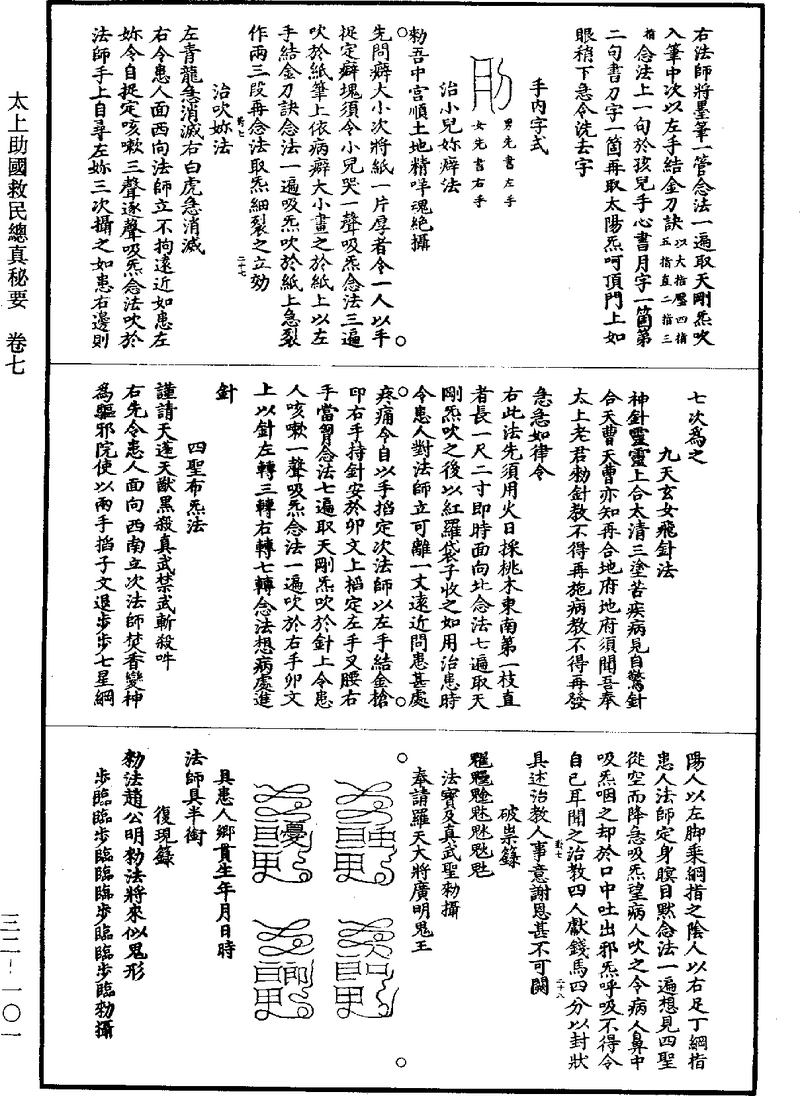 太上助國救民總真秘要　卷七
三二—一〇一
右法師將墨筆一管念法一遍取天剛炁吹
入筆中次以左手結金刀訣以大指壓四指五指直二指三
指念法上一句於孩兒手心書月字一箇第
二句書刀字一箇再取太陽炁呵頂門上如
眼稍下急令洗去字
手内字式
男先書左手
女先書右手
治小兒妳癖法
勑吾中宫順土地精咩魂絶攝
先問癖大小次將紙一片厚者令一人以手
捉定癖塊須令小兒哭一聲吸炁念法三遍
吹於紙筆上依病癖大小畫之於紙上以左
手結金刀訣念法一遍吸炁吹於紙上急裂
作兩三段再念法取炁細裂之立効
治吹妳法
左青龍急消滅右白虎急消滅
右令患人面西向法師立不拘遠近如患左
妳令自捉定咳嗽三聲逐聲吸炁念法吹於
法師手上自尋左妳三次攝之如患右邊則
七次為之
九天玄女飛針法
神針靈靈上合太清三塗苦疾病見自驚針
合天曹天曹亦知再合地府地府須聞吾奉
太上老君勑針教不得再施病教不得再發
急急如律令
右此法先須用火日採桃木東南第一枝直
者長一尺二寸即時面向北念法七遍取天
剛炁吹之後以紅羅袋子收之如用治患時
令患人對法師立可離一丈遠近問患甚處
疼痛令自以手搯定次法師以左手結金槍
印右手持針安於卯文上搯定左手叉腰右
手當胷念法七遍取天剛炁吹於針上令患
人咳嗽一聲吸炁念法一遍吹於右手卯文
上以針左轉三轉右轉七轉念法想病處進
針
四聖布炁法
謹請天逢天猷黑殺真武禁武斬殺吽
右先令患人面向西南立次法師焚香變神
為驅邪院使以兩手搯子文退步步七星綱
陽人以左脚乘綱指之陰人以右足丁綱指
患人法師定身瞑目默念法一遍想見四聖
從空而降急吸炁望病人吹之令病人鼻中
吸炁咽之却於口中吐出邪炁呼吸不得令
自已耳聞之治教四人獻錢馬四分以封狀
具述治教人事意謝恩甚不可闕
破祟籙
法寶及真武聖勑攝
奉請羅天大將廣明鬼王
具患人鄉貫生年月日時
法師具半銜
復現籙
勑法趙公明勑法將來似鬼形
步臨臨步臨臨臨步臨臨步臨勑攝